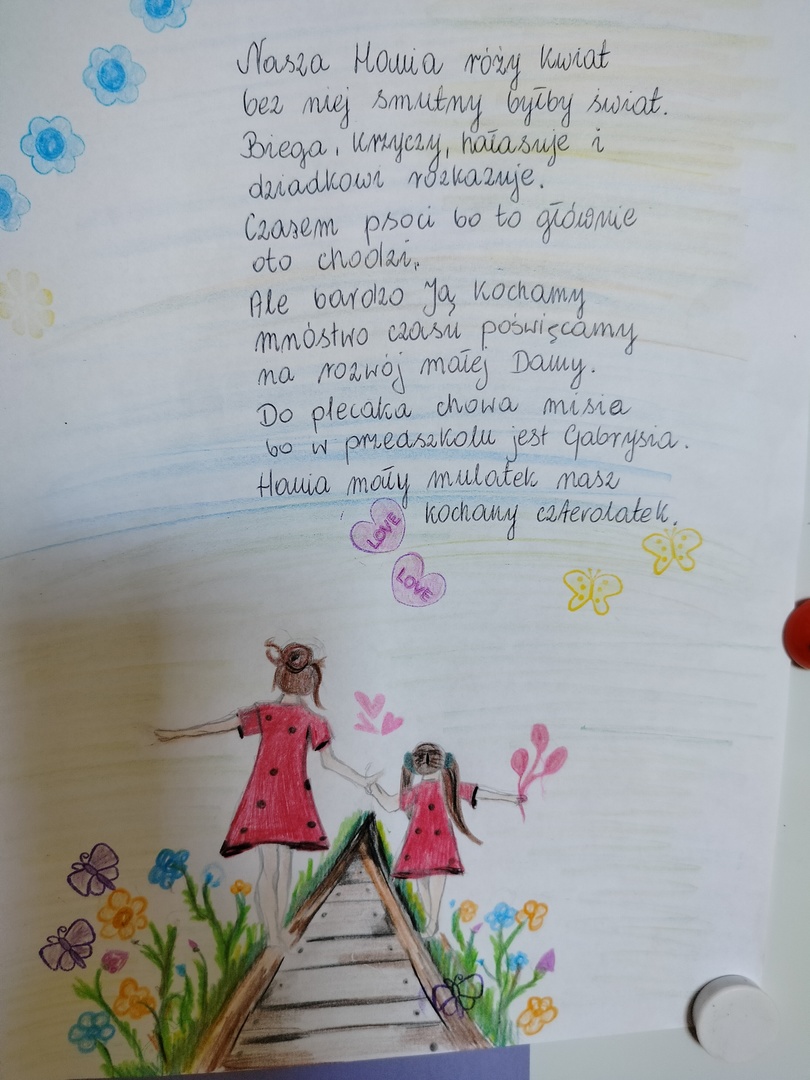 Nasza Hania róży kwiat
bez niej smutny byłby świat.
Biega, krzyczy, hałasuje i
dziadkowi rozkazuje.
Czasem psoci bo to głównie
oto chodzi.
Ale bardzo Ją kochamy
mnóstwo czasu poświęcamy
na rozwój małej Damy.
Do plecaka chowa misia
bo w przedszkolu jest Gabrysia.
Hania mały mulatek nasz
kochany czterolatek.
LOVE
LOVE